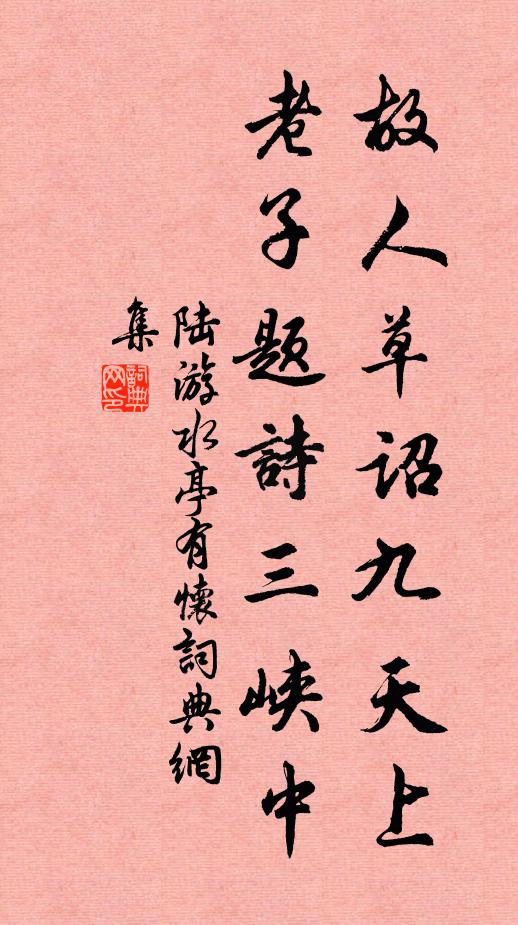 故人草诏九天上
老子题詩三峡中
陆游水亭有懷詞典網
集
詞典
网印